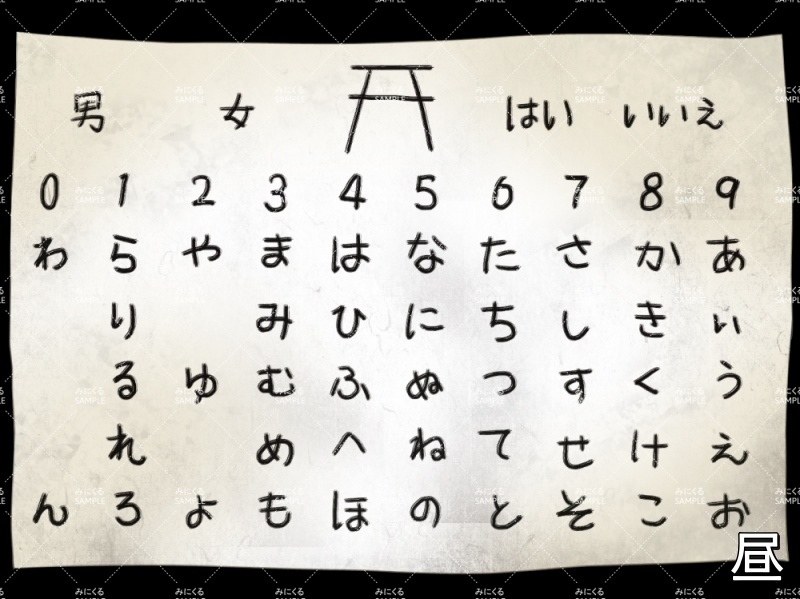 男 女 はい いいえ
0 1 2 3 4 5 6 7 8 9
わ ら や ま は な た さ か あ
り み ひ に ち し き い
る ゆ む ふ ぬ つ す く う
れ め へ ね て せ け え
ん ろ よ も ほ の と そ こ お
昼
みにくる
SAMPLE